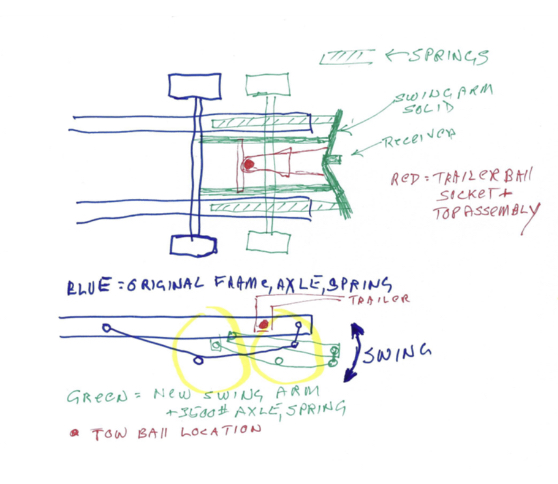 SPRINGS
SWING ARM
SOLID
RECEIVER
RED = TRAILER BALL
SOCKET +
TOP ASSEMBLY
BLUE = ORIGINAL FRAME, AXLE, SPRING
TRAILER
SWING
GREEN = NEW SWING ARM
+ 3500# AXLE, SPRING
TOW BALL LOCATION